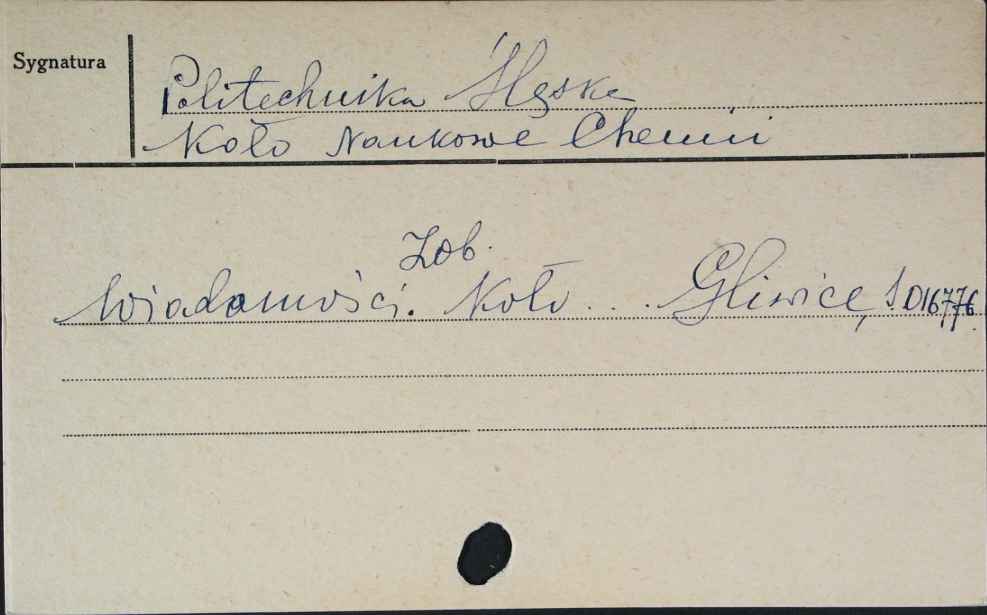 Sygnatura
Politechnika Śląska
Koło Naukowe Chemii
Zob.
Wiadomości. Koło ... Gliwice, S.D16776